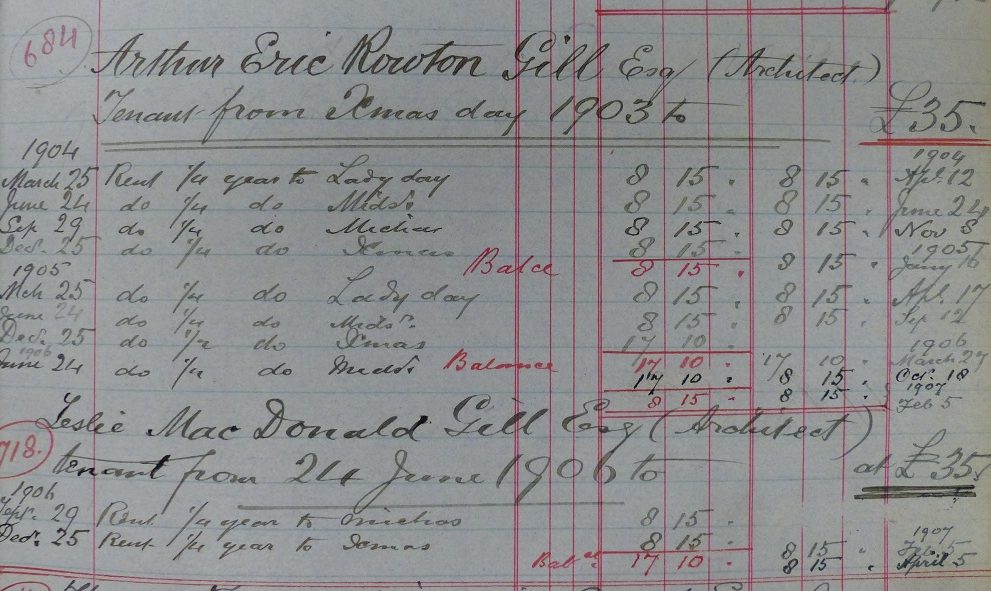 684 Arthur Eric Rowton Gill Esq (Architect.)
Tenant from Xmas day 1903 to £35.
1904 1904
March 25 Rent 1/4 year to Lady day 8 15 . 8 15 " Apl. 12
June 24 do 1/4 do Mids.r 8 15 . 8 15 " June 24
Sep 29 do 1/4 do Michas 8 15 . 8 15 " Nov 8
Decr. 25 do 1/4 do Xmas 8 15 . 1905
Balce 8 15 . 8 15 " Jany 16
1905
Mch 25 do 1/4 do Lady day 8 15 . 8 15 " Apl. 17
June 24 do 1/4 do Midsr. 8 15 . 8 15 " Sep 12
Decr. 25 do 1/2 do Xmas 17 10 . 1906
1906 Balance 17 10 . 17 10 . March 27
June 24 do 1/4 do Midsr 17 10 . 8 15 . Oct. 18
1907
8 15 . 8 15 . Feb 5
Leslie Mac Donald Gill Esq (Architect)
718. tenant from 24 June 1906 to at £35.
1906
Sepr. 29 Rent 1/4 year to Michas 8 15 .
Decr. 25 Rent 1/4 year to Xmas 8 15 . 1907
8 15 " Feb 5
Balce 17 10 . 8 15 " April 5